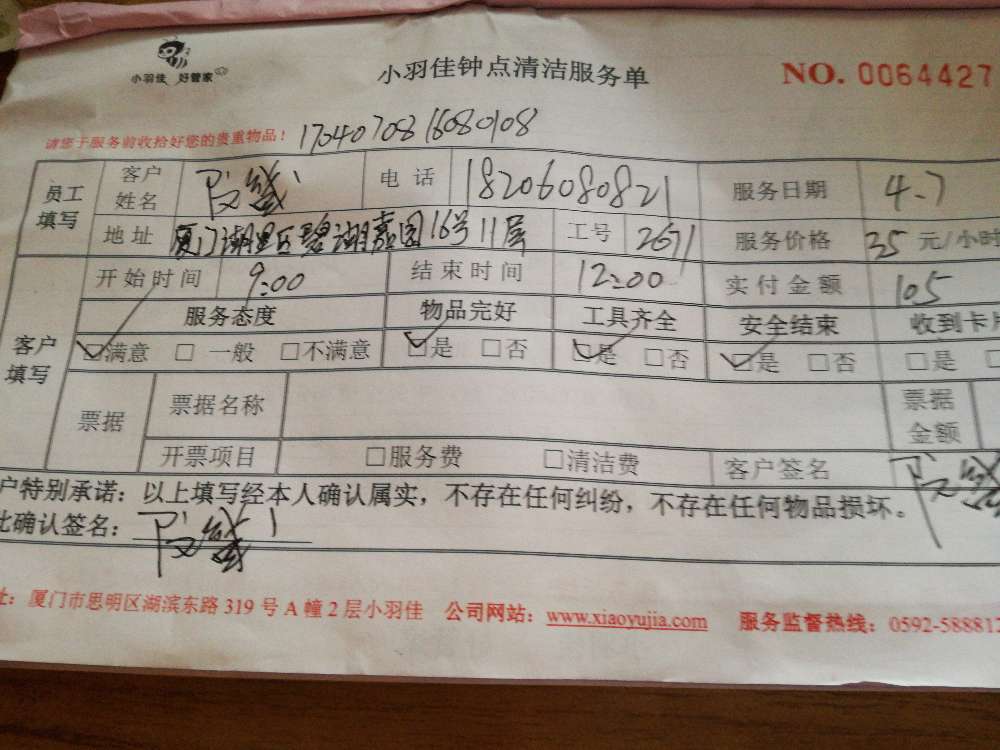 小羽佳 好管家
小羽佳钟点清洁服务单
NO. 0064427
请您于服务前收拾好您的贵重物品！ 1704070816080108
员工填写 客户姓名 电话 18206080821 服务日期 4.7
地址 厦门湖里区碧湖嘉园16号11层 工号 2671 服务价格 35 元/小时
客户填写 开始时间 9:00 结束时间 12:00 实付金额 105
服务态度 物品完好 工具齐全 安全结束 收到卡片
☑满意 □ 一般 □不满意 ☑是 □否 ☑是 □否 ☑是 □否 □是 □
票据 票据名称 票据金额
开票项目 □服务费 □清洁费 客户签名
户特别承诺：以上填写经本人确认属实，不存在任何纠纷，不存在任何物品损坏。
比确认签名：
址：厦门市思明区湖滨东路 319 号 A 幢 2 层小羽佳 公司网站：www.xiaoyujia.com 服务监督热线：0592-5888812